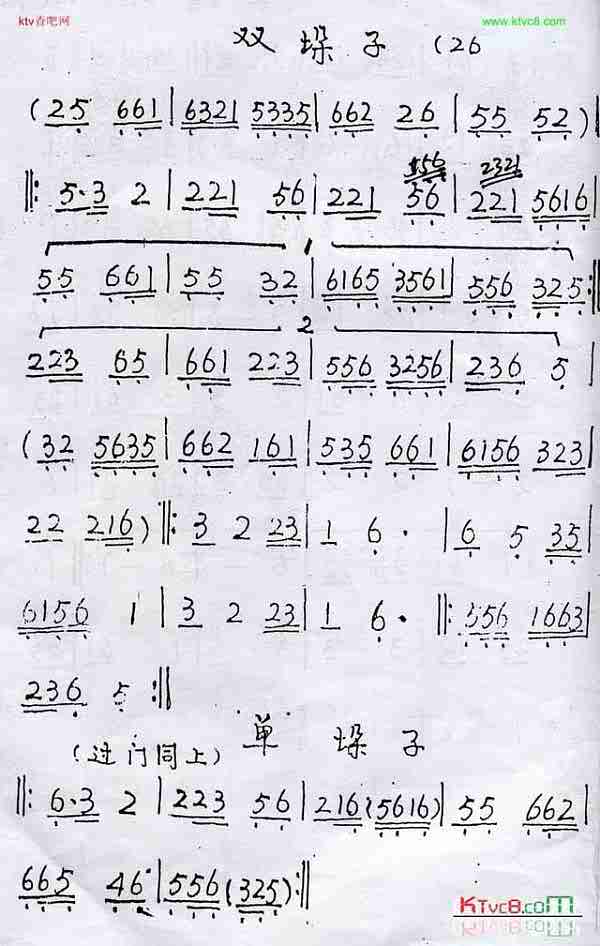 ktv杳吧网
www.ktvc8.com
双 垛 子 (26
(25 661 | 6321 5335 | 662 26 | 55 52 ) |
556 2321
‖: 5·3 2 | 221 56 | 221 56 | 221 5616 |
1
55 661 | 55 32 | 6165 3561 | 556 325 :‖
2
223 65 | 661 223 | 556 3256 | 236 5 |
(32 5635 | 662 161 | 535 661 | 6156 323 |
22 216 ) ‖: 3 2 23 | 1 6 · | 6 5 35 |
6156 1 | 3 2 23 | 1 6 · ‖: 556 1663 |
236 5 :‖
(过门同上) 单 垛 子
‖: 6·3 2 | 223 56 | 216 (5616) | 55 662 |
665 46 | 556 (325) :‖
KTvc8.com
KTvc8.com